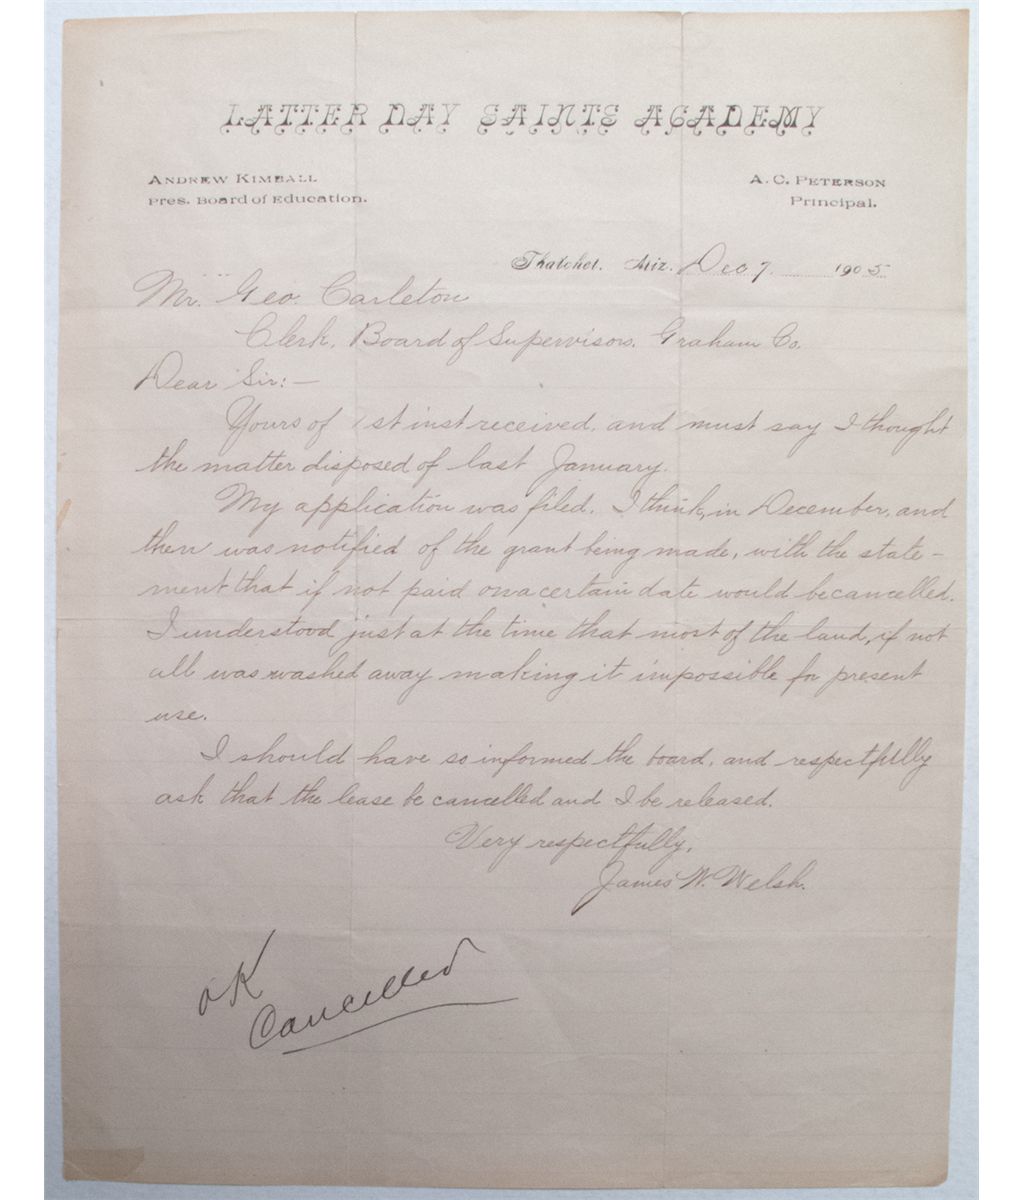 LATTER DAY SAINTS ACADEMY
ANDREW KIMBALL
Pres. Board of Education.
A. C. PETERSON
Principal.
Thatcher, Ariz. Dec 7, 1905
Mr. Geo. Carleton
Clerk, Board of Supervisors, Graham Co.
Dear Sir:—
Yours of 1st inst received, and must say I thought
the matter disposed of last January.
My application was filed, I think, in December, and
then was notified of the grant being made, with the state-
ment that if not paid on a certain date would be cancelled.
I understood just at the time that most of the land, if not
all was washed away making it impossible for present
use.
I should have so informed the board, and respectfully
ask that the lease be cancelled and I be released.
Very respectfully,
James W. Welsh.
OK
Cancelled